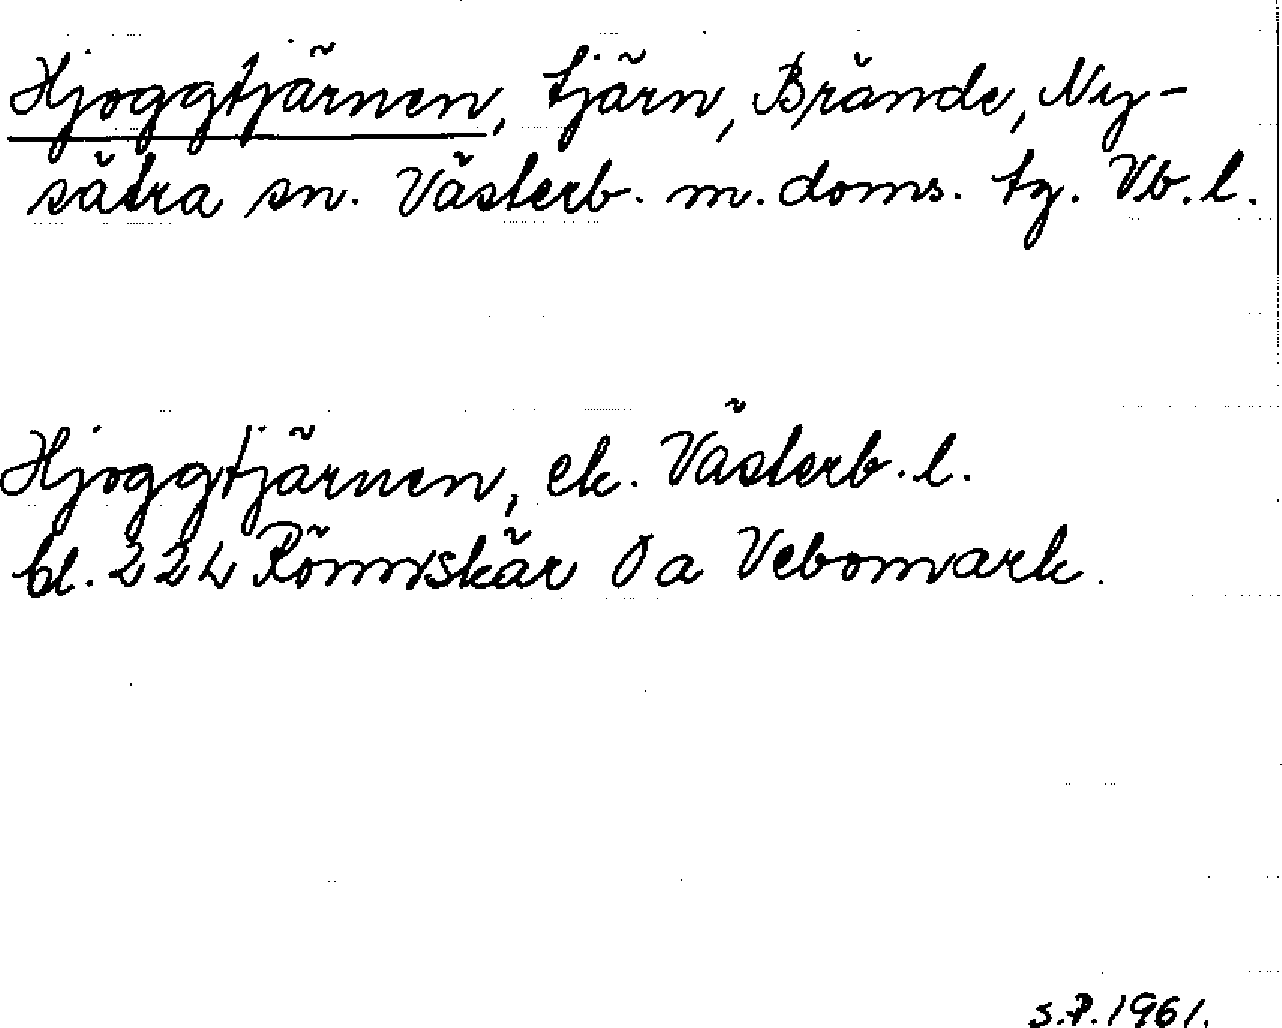 Hjoggtjärnen, tjärn, Brände, Ny-
sätra sn. Västerb. m. doms. tg. Vb. l.
Hjoggtjärnen, ek. Västerb. l.
bl. 224 Rönnskär Ö a Vebomark.
S.P. 1961.